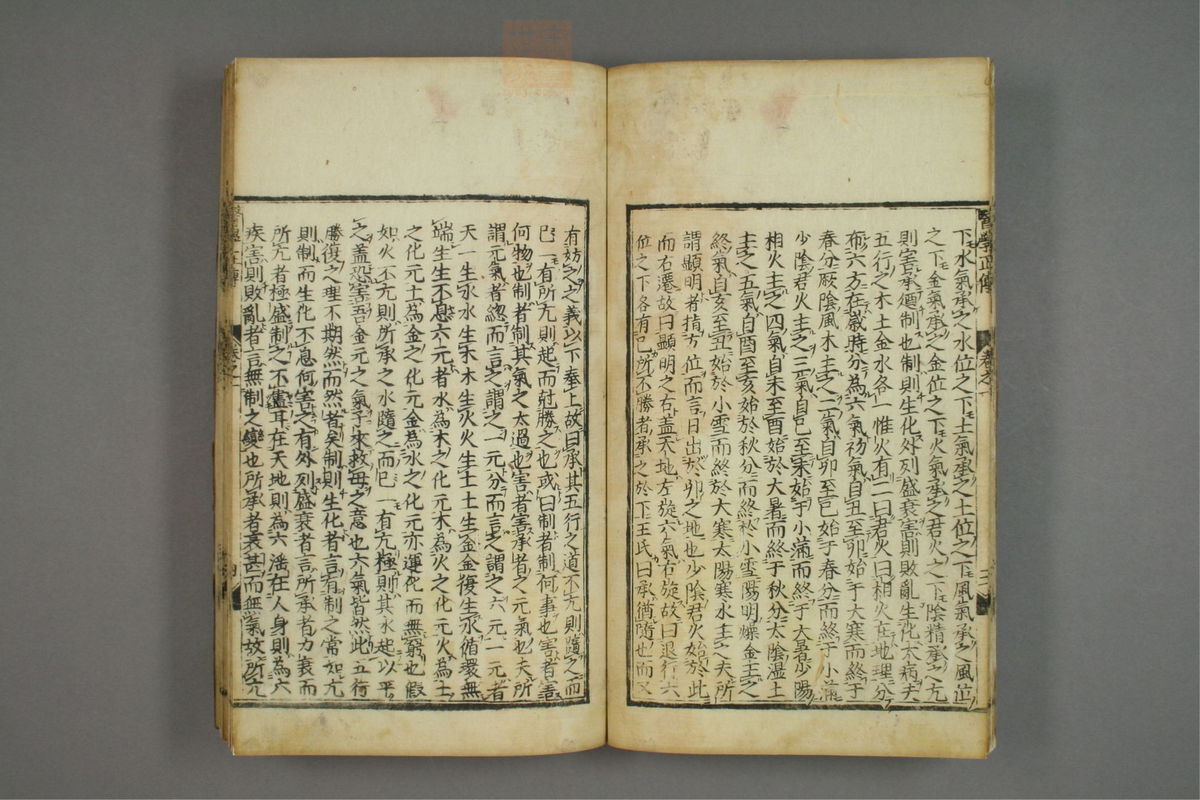 醫學正傳 卷之一 三
下水氣承之水位之下土氣承之土位之下風氣承之風位
之下金氣承之金位之下火氣承之君火之下陰精承之亢
則害承廼制也制則生化外列盛衰害則敗亂生化大病夫
五行之木土金水各一惟火有二曰君火曰相火在地理分
布六方在歲時分為六氣初氣自丑至卯始于大寒而終于
春分厥陰風木主之二氣自卯至巳始于春分而終于小滿
少陰君火主之三氣自巳至未始于小滿而終于大暑少陽
相火主之四氣自未至酉始於大暑而終于秋分太陰濕土
主之五氣自酉至亥始於秋分而終於小雪陽明燥金主之
終氣自亥至丑始於小雪而終於大寒太陽寒水主之夫所
謂顯明者指方位而言日出於卯之地也少陰君火始於此
而右遷故曰顯明之右盖天地左旋六氣右旋故曰退行六
位之下各有己所不勝者承之於下王氏曰承猶隨也而又
有妨之之義以下奉上故曰承其五行之道不亢則隨之而
巳一有所亢則起而尅勝之也或曰制者制何事也害者害
何物也制者制其氣之太過也害者害承者之元氣也夫所
謂元氣者總而言之謂之一元分而言之謂之六元一元者
天一生水水生木木生火火生土土生金金復生水循環無
端生生不息六元者水為木之化元木為火之化元火為土
之化元土為金之化元金為水之化元亦運化而無窮也假
如火不亢則所承之水隨之而巳一有亢極則其水起以平
之盖恐害吾金元之氣子來救母之意也六氣皆然此五行
勝復之理不期然而然者矣制則生化者言有制之常如亢
則制而生化不息何害之有外列盛衰者言所承者力衰而
所亢者極盛制之不盡耳在天地則為六淫在人身則為六
疾害則敗亂者言無制之變也所承者衰甚而無氣故所亢
卷之一 四